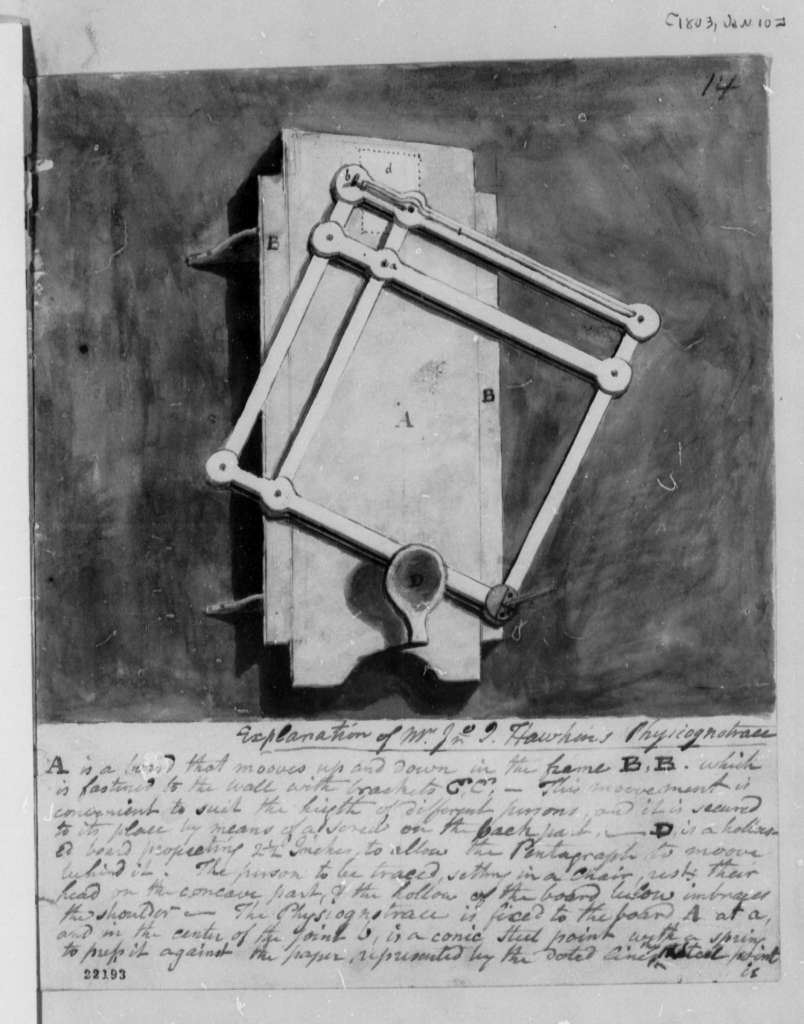 [1803, Jan 10]
14
b
d
B
a
A
B
D
Explanation of Mr. Jno I. Hawkins Physiognotrace
A is a board that mooves up and down in the frame B, B. which
is fastened to the wall with brackets C.C. — This moovement is
convenient to suit the higth of different persons, and it is secured
to its place by means of a screw on the back part. — D, is a hollow-
ed board projecting 2½ Inches, to allow the Pentagraph to moove
behind it. The person to be traced, setting in a chair, rests their
head on the concave part, & the hollow of the board below imbraces
the shoulder — The Physiognotrace is fixed to the board A at a,
and in the center of the joint b, is a conic steel point with a spring
to press it against the paper, represented by the doted lines, steel point
22193
is